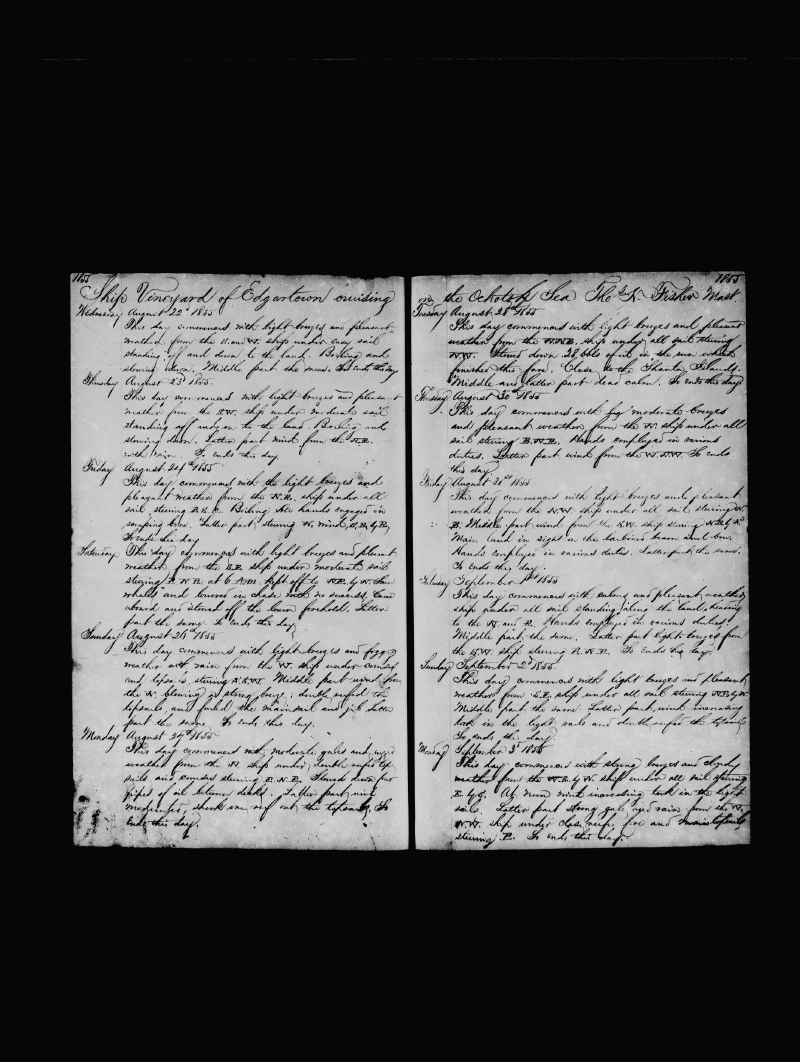 1855
Ship Vineyard of Edgartown cruising
Wednesday August 22nd 1855
This day commences with light breezes and pleasant
weather from the ship under easy sail
standing off and down to the land. Boiling and
stowing down. Middle part the same. So ends this day
Thursday August 23d 1855.
This day commences with light breezes and pleasant
weather from the S.W. ship under moderate sail
standing off and on to the land. Boiling and
stowing down. Latter part wind from the N.E.
with rain. So ends this day.
Friday August 24th 1855
This day commences with the light breezes and
pleasant weather from the N.E. ship under all
sail steering Boiling All hands engaged in
scraping bone. Latter part steering N. wind E. by
So ends this day
Saturday This day commences with light breezes and pleasant
weather from the S.E. ship under moderate sail
steering E.N.E. at 6 A.M. kept off to N.E. by N. Saw
whales and lowered in chase with no success, Came
aboard and stowed off the lower forehold. Latter
part the same. So ends this day
Sunday August 26th 1855
This day commences with light breezes and foggy
weather with rain from the W. ship under courses
and topsails, steering Middle part wind from
the N. blowing a strong breeze; double reefed the
topsails, and furled the mainsail and jib Latter
part the same. So ends this day.
Monday August 27th 1855
This day commences with moderate gales and
weather from the N. ship under double reefed top
sails and courses steering E.N.E. Stowed down four
pipes of oil between decks. Latter part wind
moderates, shook one reef out the topsails, So
Ends this day.
1855
in the Ochotsk Sea Tho. N. Fisher Mast.
Tuesday August 28th 1855
This day commences with light breezes and pleasant
weather from the ship under all sail steering
N.W. Stowed down 28 bbls of oil in the run which
finishes this fare. Close to the Shantz Islands.
Middle and latter part dead calm. So ends this day
Thursday August 30th 1855
This day commences with fog moderate breezes
and pleasant weather from the W. ship under all
sail steering E.N.E. Hands employed in various
duties. Latter part wind from the W.N.W. So ends
this day.
Friday August 31st 1855
This day commences with light breezes and pleasant
weather from the N.W. ship under all sail steering N.
E. Middle part wind from the S.W. ship steering
Main land in sight on the larboard beam and bow.
Hands employed in various duties. Latter part the same.
So ends this day.
Saturday September 1st 1855
This day commences with calms and pleasant weather,
ship under all sail standing along the land, bearing
to the N. and E. Hands employed in various duties.
Middle part the same. Latter part light breezes from
the S.W. ship steering E.N.E. So ends this day.
Sunday September 2d 1855.
This day commences with light breezes and pleasant
weather from S.E. ship under all sail steering N.E. by N.
Middle part the same Latter part, wind increasing
took in the light sails and double reefed the topsails
So ends this day
Monday September 3d 1855
This day commences with strong breezes and cloudy
weather from the W. by N. ship under all sail steering
E. by S. At Noon wind increasing took in the light
sails. Latter part strong gale and rain from the W.
N.W. ship under close reefed fore and main topsails
steering E. So ends this day.